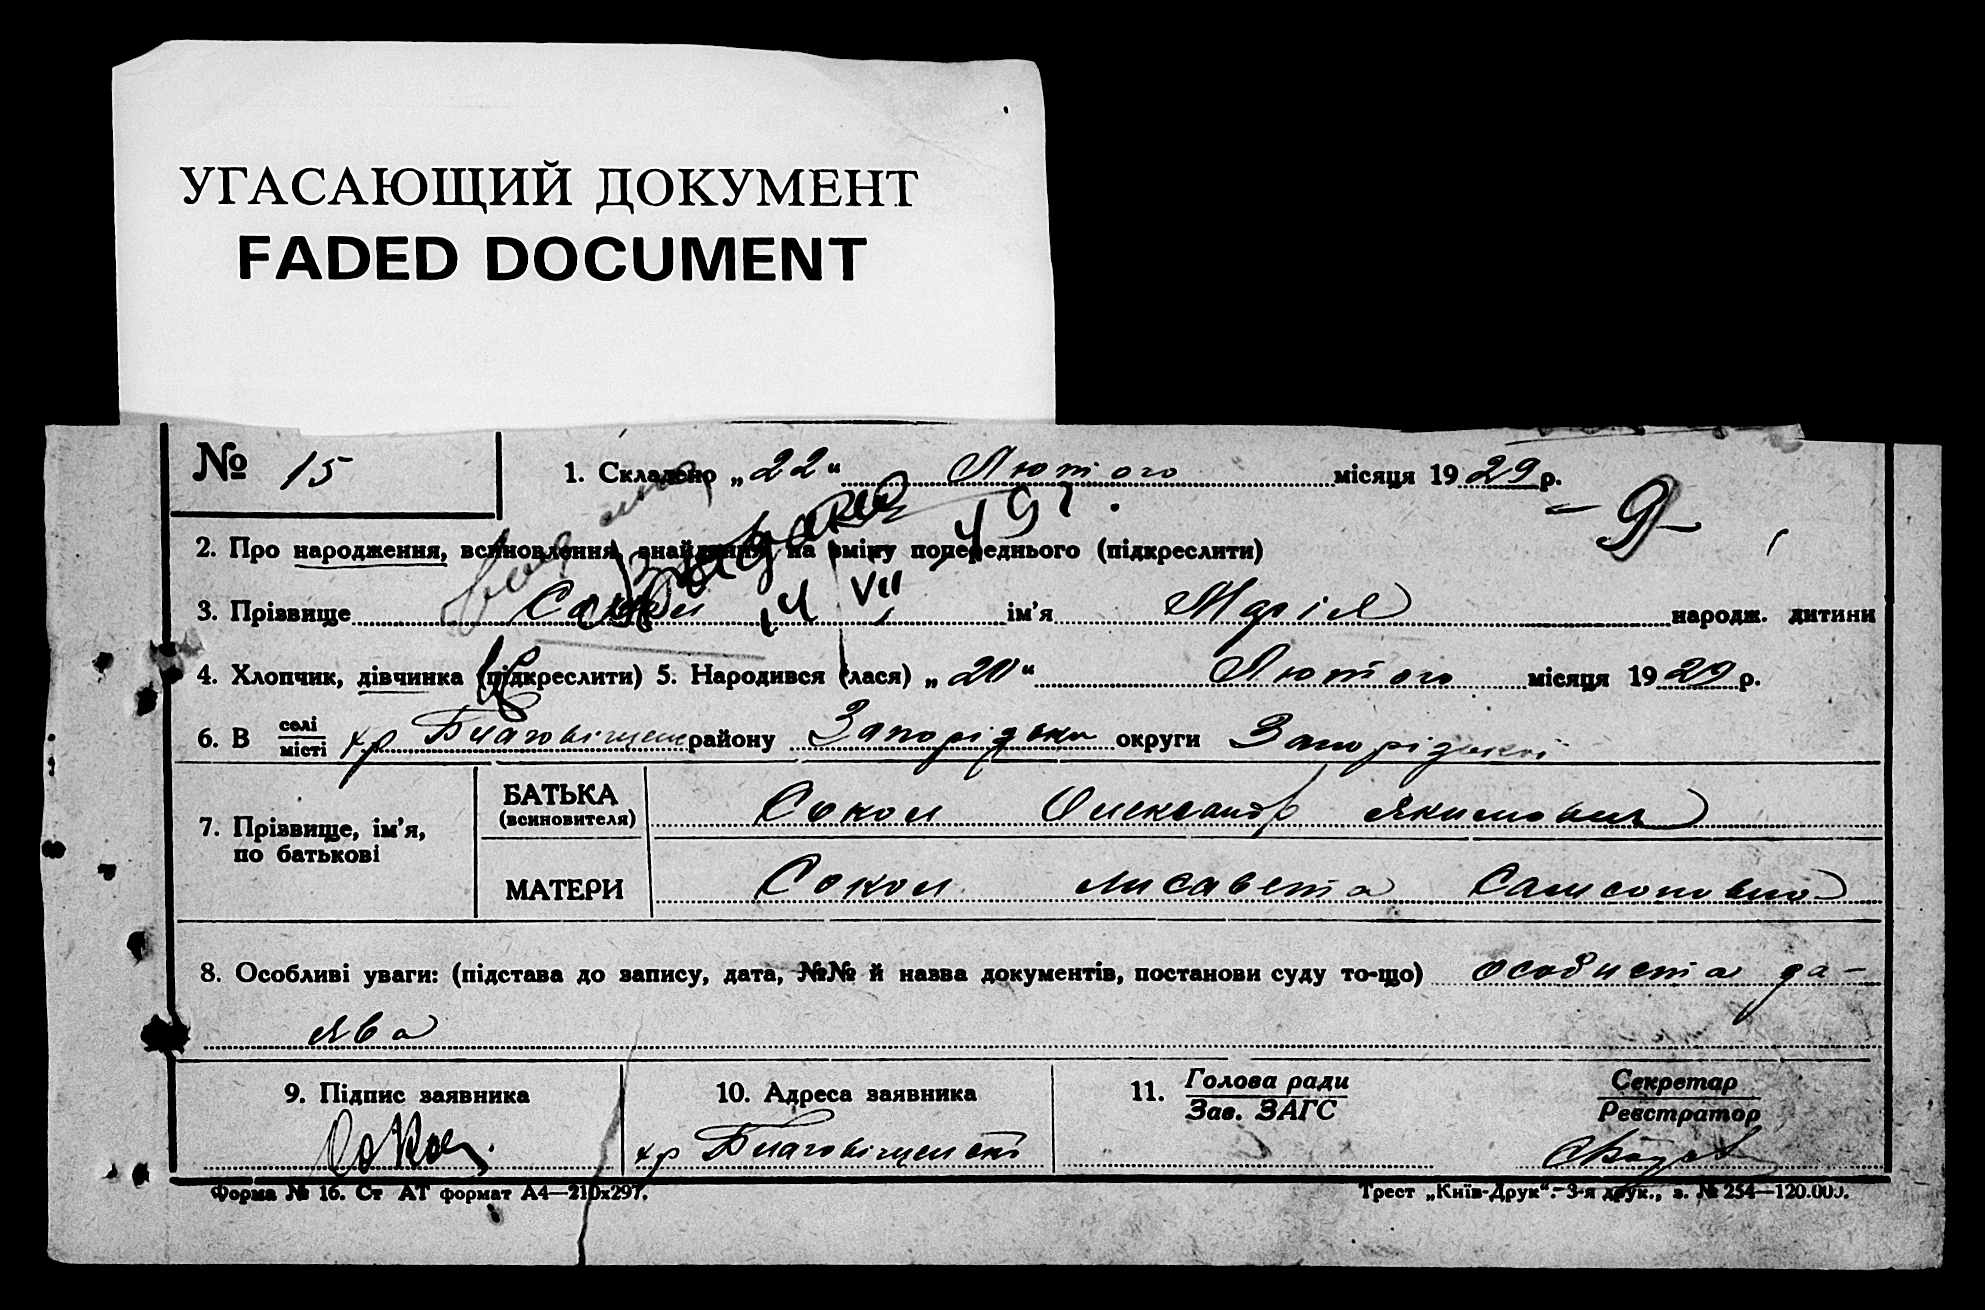 УГАСАЮЩИЙ ДОКУМЕНТ
FADED DOCUMENT
№ 15
1. Складено „22“ Лютого місяця 1929 р.
2. Про народження, всиновлення, знайдення, на зміну попереднього (підкреслити)
- 9 -
14 VII
3. Прізвище Сокол ім’я Марія народж. дитини
4. Хлопчик, дівчинка (підкреслити) 5. Народився (лася) „20“ Лютого місяця 1929 р.
6. В селі місті хр Благовіщен району Запорізьки округи Запорізької
7. Прізвище, ім’я, по батькові
БАТЬКА (всиновителя) Сокол Олександр Якимович
МАТЕРИ Сокол Лисавета Самсоновна
8. Особливі уваги: (підстава до запису, дата, №№ й назва документів, постанови суду то-що) особиста за-
ява
9. Підпис заявника 10. Адреса заявника 11. Голова ради Секретар
Зав. ЗАГС Реєстратор
Сокол хр Благовіщенські
Форма № 16. Ст АТ формат А4—210х297. Трест „Київ-Друк“.-3-я друк., з. № 254—120.000.